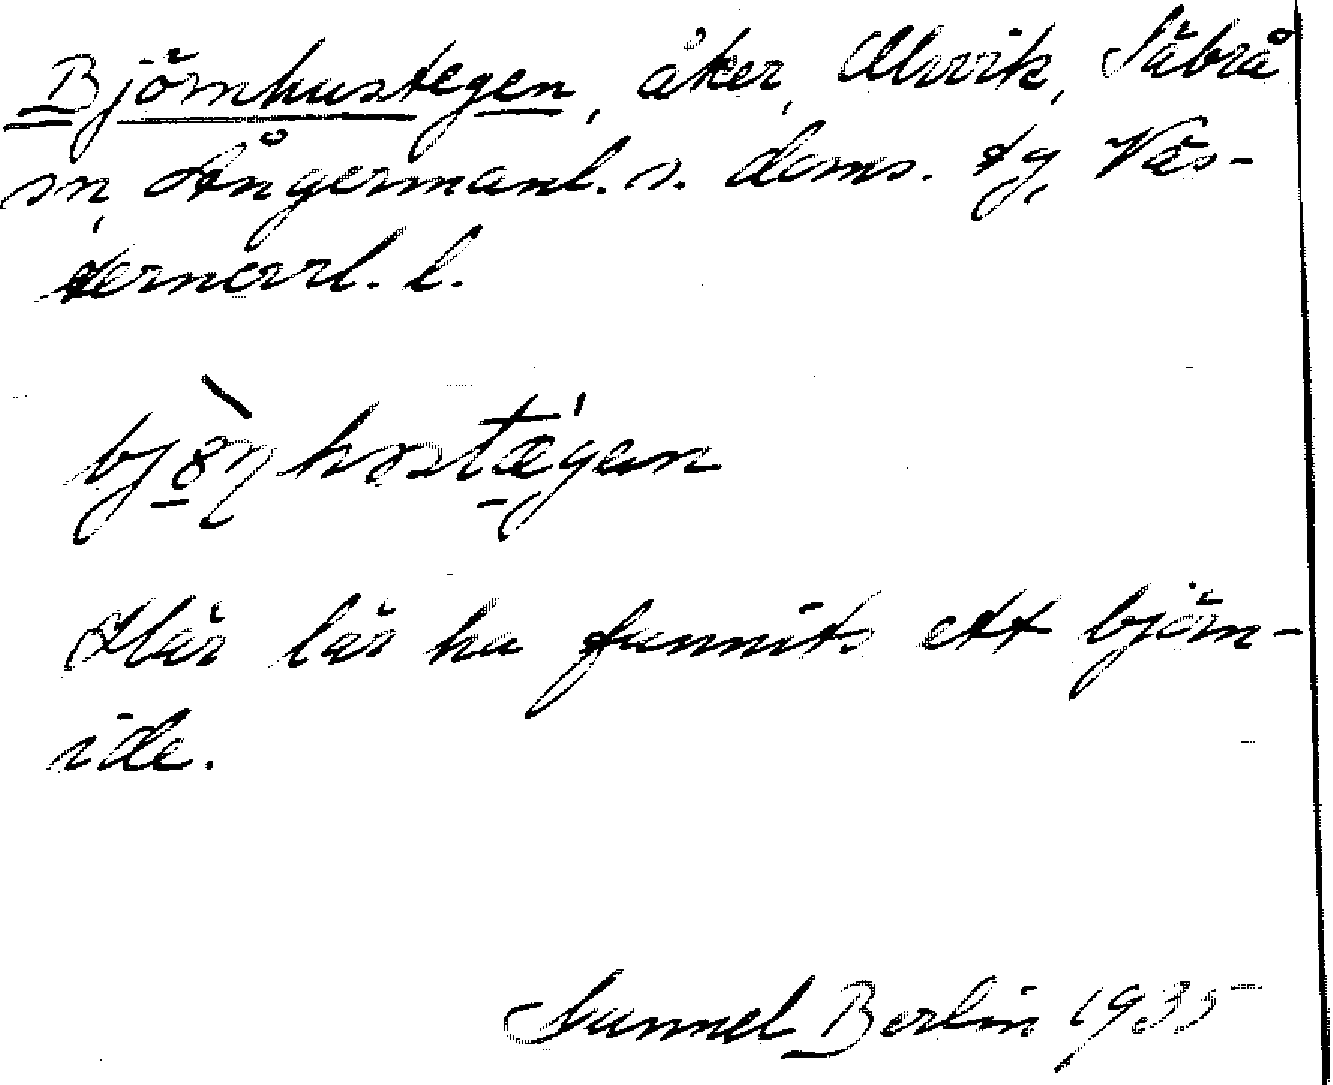 Björnhustegen, åker, Ulvvik, Säbrå
sn, Ångermanl. s. doms. tg, Väs-
ternorrl. l.
Här lär ha funnits ett björn-
ide.
Gunnel Berlin 1935